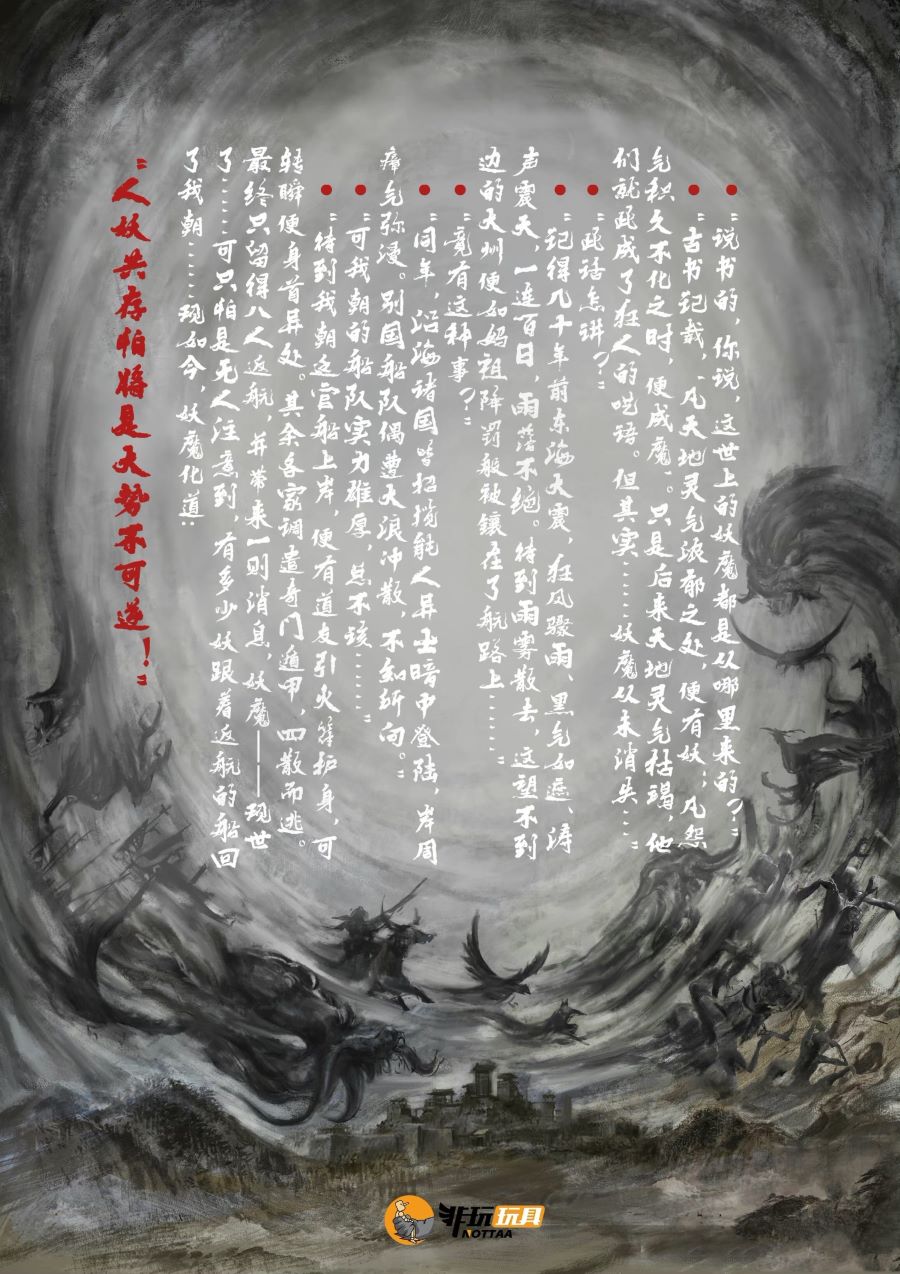 “说书的，你说，这世上的妖魔都是从哪里来的？”
“古书记载，凡天地灵气浓郁之处，便有妖；凡怨
气积久不化之时，便成魔。只是后来天地灵气枯竭，他
们就此成了狂人的呓语。但其实……妖魔从未消失…”
“此话怎讲？”
“记得几十年前东海大震，狂风骤雨、黑气如遮、涛
声震天，一连百日，雨落不绝。待到雨雾散去，这望不到
边的大州便如妈祖降罚般被镶在了航路上……”
“竟有这种事？”
“同年，沿海诸国皆招揽能人异士暗中登陆，岸周
瘴气弥浸。别国船队偶遭大浪冲散，不知所向。”
“可我朝的船队实力雄厚，总不该……”
“待到我朝这官船上岸，便有道友引火 护身，可
转瞬便身首异处。其余各家调遣奇门遁甲，四散而逃。
最终只留得八人返航，并带来一则消息，妖魔——现世
了……可只怕是无人注意到，有多少妖跟着返航的船回
了我朝……现如今，妖魔化道：
“人妖共存怕将是大势不可逆！”
非玩玩具
NOTTAA